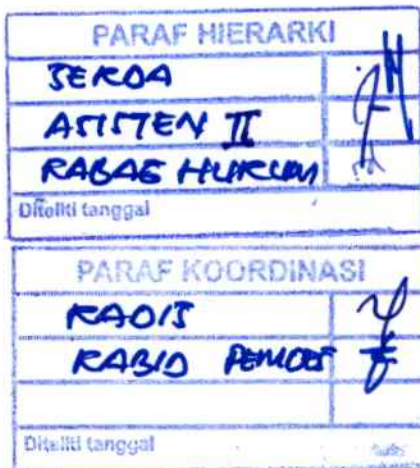 PARAF HIERARKI
SEKDA
ASISTEN II
KABAG HUKUM
Diteliti tanggal
PARAF KOORDINASI
KADIS
KABID
Diteliti tanggal